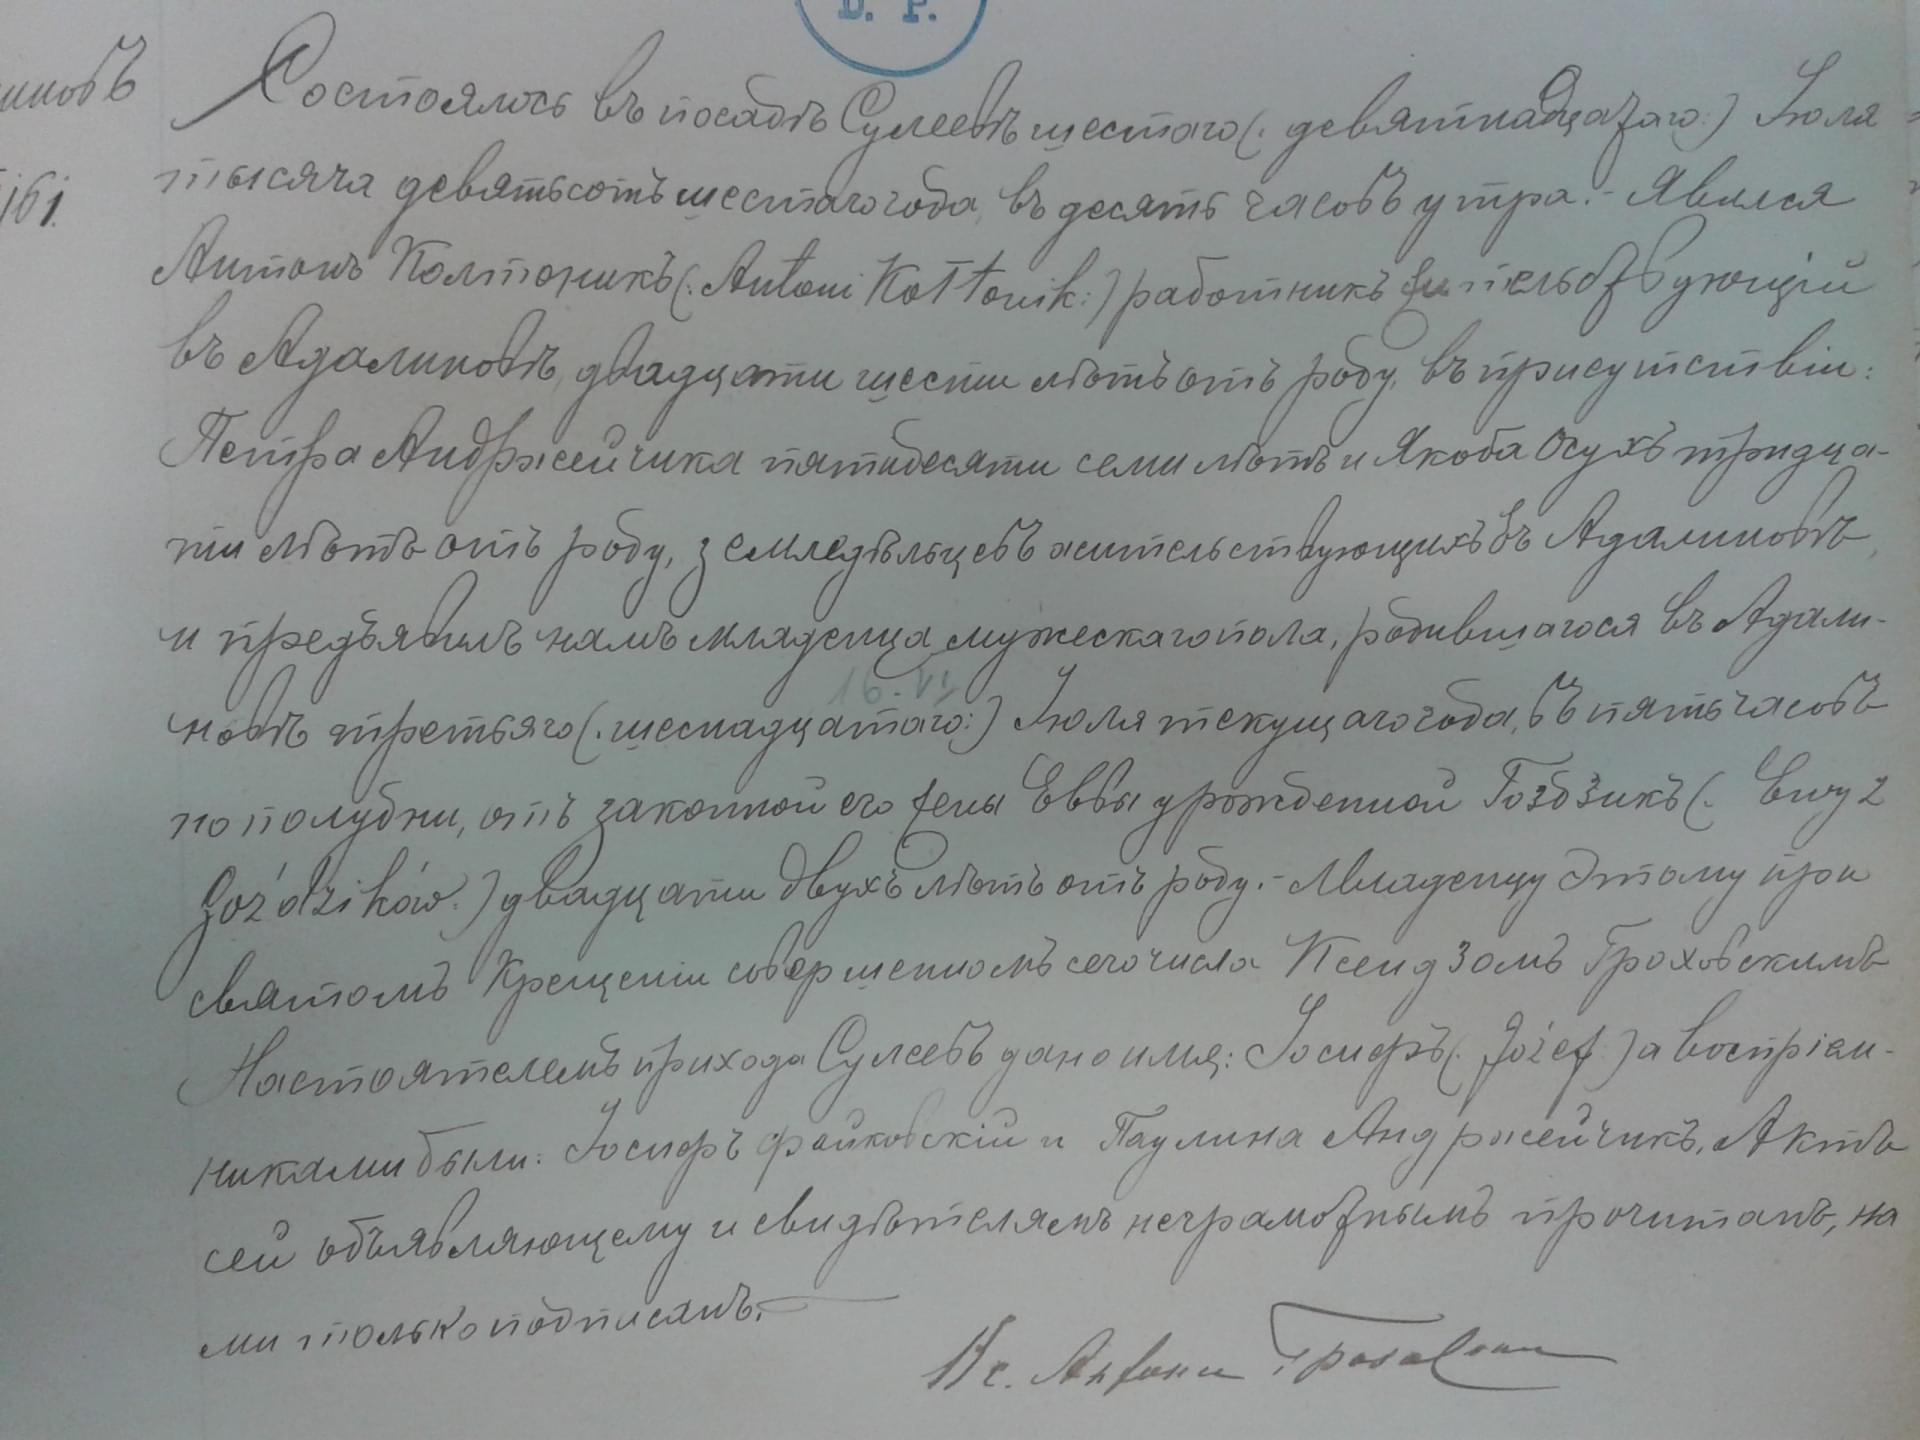 D. P.
иновъ
161.
Состоялось въ посадѣ Сулеевѣ шестого (: девятнадцатаго:) Іюля
тысяча девятьсотъ шестаго года, въ десять часовъ утра. - Явился
Антонъ Колтоникъ (: Antoni Kołtonik:) работникъ жительствующій
въ Адалиновѣ, двадцати шести лѣтъ отъ роду, въ присутствіи:
Петра Андржейчика пятидесяти семи лѣтъ и Якоба Осухъ тридца-
ти лѣтъ отъ роду, земледѣльцевъ жительствующихъ въ Адалиновѣ,
и предъявилъ намъ младенца мужескаго пола, родившагося въ Адали-
16. VI
новѣ третьяго (: шеснадцатаго:) Іюля текущаго года, въ пять часовъ
по полудни, отъ законной его жены Еввы урожденной Гозбзикъ (: Ewy z
Goździków:) двадцати двухъ лѣтъ отъ роду. - Младенцу этому при
святомъ Крещеніи совершенномъ сего числа Ксендзомъ Гроховскимъ
Настоятелемъ прихода Сулеевъ дано имя: Іосифъ (: Józef:) а воспріем-
никами были: Іосифъ Файковскій и Паулина Андржейчикъ. Актъ
сей объявляющему и свидѣтелямъ неграмотнымъ прочитанъ, на
ми только подписанъ.
Кс. Антони Гроховски